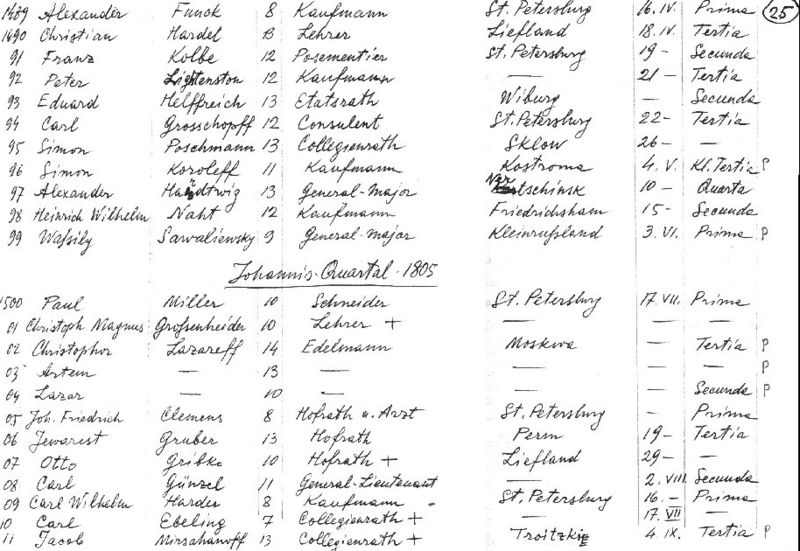 1489 Alexander Funck 8 Kaufmann St. Petersburg 16. IV. Prima 25
1490 Christian Hardel 13 Lehrer Liefland 18. IV. Tertia
91 Franz Kolbe 12 Posementier St. Petersburg 19 - Secunda
92 Peter Lichtenston 12 Kaufmann — 21 - Tertia
93 Eduard Helffreich 13 Etatsrath Wiburg — Secunda
94 Carl Grosschopff 12 Consulent St. Petersburg 22 - Tertia
95 Simon Poschmann 13 Collegienrath Sklow 26 - —
96 Simon Koroleff 11 Kaufmann Kostroma 4. V. Kl. Tertia P
97 Alexander Handtwig 13 General-Major Nertschinsk 10 - Quarta
98 Heinrich Wilhelm Naht 12 Kaufmann Friedrichsham 15 - Secunda
99 Waßily Sawaliewsky 9 General-major Kleinrußland 3. VI. Prima P
Johannis-Quartal 1805
1500 Paul Miller 10 Schneider St. Petersburg 17 VII. Prima
01 Christoph Magnus Großenheider 10 Lehrer + — — —
02 Christophor Lazareff 14 Edelmann Moskwa — Tertia P
03 Artem — 13 — — — — P
04 Lazar — 10 — — — Secunda P
05 Joh. Friedrich Clemens 8 Hofrath u. Arzt St. Petersburg - Prima
06 Jewarest Gruber 13 Hofrath Perm 19 - Tertia
07 Otto Gribko 10 Hofrath + Liefland 29 - —
08 Carl Günzel 11 General-Lieutenant — 2. VIII. Secunda
09 Carl Wilhelm Harder 8 Kaufmann St. Petersburg 16. - Prima
10 Carl Ebeling 7 Collegienrath + — 17. VII —
11 Jacob Mirzahanoff 13 Collegienrath + Troitzkie 4. IX. Tertia P